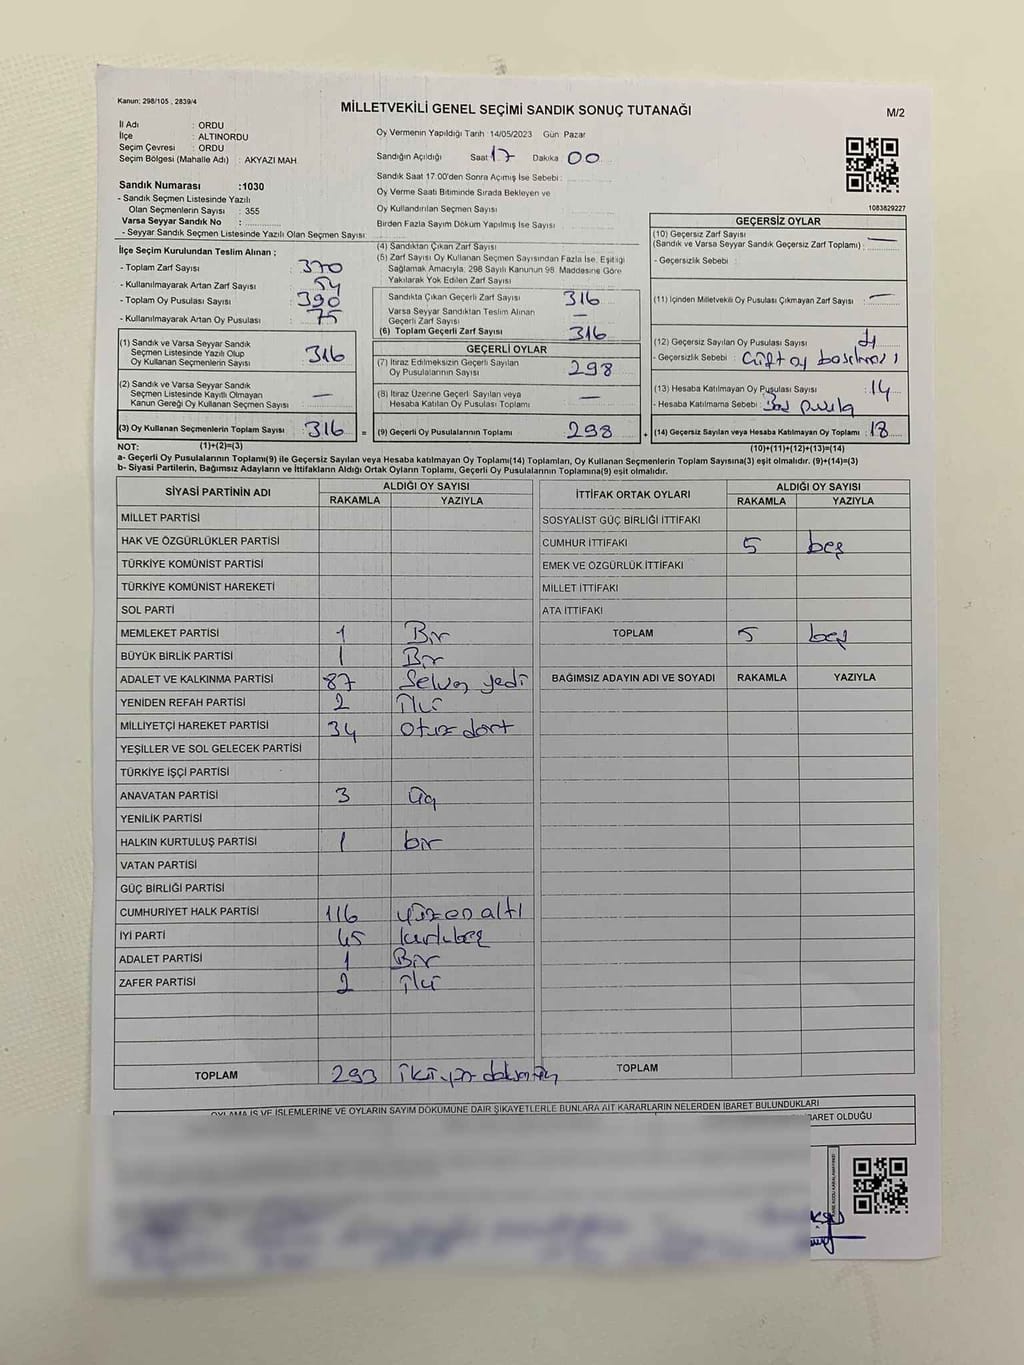 Kanun: 298/105 , 2839/4
MİLLETVEKİLİ GENEL SEÇİMİ SANDIK SONUÇ TUTANAĞI
M/2
İl Adı : ORDU
İlçe : ALTINORDU
Seçim Çevresi : ORDU
Seçim Bölgesi (Mahalle Adı) : AKYAZI MAH
Sandık Numarası :1030
- Sandık Seçmen Listesinde Yazılı
Olan Seçmenlerin Sayısı : 355
Varsa Seyyar Sandık No :
- Seyyar Sandık Seçmen Listesinde Yazılı Olan Seçmen Sayısı:
Oy Vermenin Yapıldığı Tarih :14/05/2023 Gün Pazar
Sandığın Açıldığı Saat 17 Dakika 00
Sandık Saat 17:00'den Sonra Açımış İse Sebebi:
Oy Verme Saati Bitiminde Sırada Bekleyen ve
Oy Kullandırılan Seçmen Sayısı
Birden Fazla Sayım Döküm Yapılmış İse Sayısı
1083829227
İlçe Seçim Kurulundan Teslim Alınan ;
- Toplam Zarf Sayısı : 370
- Kullanılmayarak Artan Zarf Sayısı : 54
- Toplam Oy Pusulası Sayısı : 390
- Kullanılmayarak Artan Oy Pusulası : 75
(1) Sandık ve Varsa Seyyar Sandık
Seçmen Listesinde Yazılı Olup
Oy Kullanan Seçmenlerin Sayısı : 316
(2) Sandık ve Varsa Seyyar Sandık
Seçmen Listesinde Kayıtlı Olmayan
Kanun Gereği Oy Kullanan Seçmen Sayısı : —
(3) Oy Kullanan Seçmenlerin Toplam Sayısı : 316 =
(1)+(2)=(3)
(4) Sandıktan Çıkan Zarf Sayısı
(5) Zarf Sayısı Oy Kullanan Seçmen Sayısından Fazla İse, Eşitliği
Sağlamak Amacıyla, 298 Sayılı Kanunun 98. Maddesine Göre
Yakılarak Yok Edilen Zarf Sayısı
Sandıkta Çıkan Geçerli Zarf Sayısı 316
Varsa Seyyar Sandıktan Teslim Alınan
Geçerli Zarf Sayısı —
(6) Toplam Geçerli Zarf Sayısı 316
GEÇERLİ OYLAR
(7) İtiraz Edilmeksizin Geçerli Sayılan
Oy Pusulalarının Sayısı 298
(8) İtiraz Üzerine Geçerli Sayılan veya
Hesaba Katılan Oy Pusulaları Toplamı —
(9) Geçerli Oy Pusulalarının Toplamı 298 +
GEÇERSİZ OYLAR
(10) Geçersiz Zarf Sayısı
(Sandık ve Varsa Seyyar Sandık Geçersiz Zarf Toplamı) : —
- Geçersizlik Sebebi :
(11) İçinden Milletvekili Oy Pusulası Çıkmayan Zarf Sayısı : —
(12) Geçersiz Sayılan Oy Pusulası Sayısı : 4
- Geçersizlik Sebebi : Çift oy
(13) Hesaba Katılmayan Oy Pusulası Sayısı : 14
- Hesaba Katılmama Sebebi :
(14) Geçersiz Sayılan veya Hesaba Katılmayan Oy Toplamı : 18
(10)+(11)+(12)+(13)=(14)
NOT:
a- Geçerli Oy Pusulalarının Toplamı(9) ile Geçersiz Sayılan veya Hesaba Katılmayan Oy Toplamı(14) Toplamları, Oy Kullanan Seçmenlerin Toplam Sayısına(3) eşit olmalıdır. (9)+(14)=(3)
b- Siyasi Partilerin, Bağımsız Adayların ve İttifakların Aldığı Ortak Oyların Toplamı, Geçerli Oy Pusulalarının Toplamına(9) eşit olmalıdır.
SİYASİ PARTİNİN ADI ALDIĞI OY SAYISI
RAKAMLA YAZIYLA
MİLLET PARTİSİ
HAK VE ÖZGÜRLÜKLER PARTİSİ
TÜRKİYE KOMÜNİST PARTİSİ
TÜRKİYE KOMÜNİST HAREKETİ
SOL PARTİ
MEMLEKET PARTİSİ 1 Bir
BÜYÜK BİRLİK PARTİSİ 1 Bir
ADALET VE KALKINMA PARTİSİ 87 Seksen yedi
YENİDEN REFAH PARTİSİ 2 İki
MİLLİYETÇİ HAREKET PARTİSİ 34 Otuz dört
YEŞİLLER VE SOL GELECEK PARTİSİ
TÜRKİYE İŞÇİ PARTİSİ
ANAVATAN PARTİSİ 3 Üç
YENİLİK PARTİSİ
HALKIN KURTULUŞ PARTİSİ 1 bir
VATAN PARTİSİ
GÜÇ BİRLİĞİ PARTİSİ
CUMHURİYET HALK PARTİSİ 116 yüzon altı
İYİ PARTİ 45 kırkbeş
ADALET PARTİSİ 1 Bir
ZAFER PARTİSİ 2 İki
TOPLAM 293 ikiyüz doksan üç
İTTİFAK ORTAK OYLARI ALDIĞI OY SAYISI
RAKAMLA YAZIYLA
SOSYALİST GÜÇ BİRLİĞİ İTTİFAKI
CUMHUR İTTİFAKI 5 beş
EMEK VE ÖZGÜRLÜK İTTİFAKI
MİLLET İTTİFAKI
ATA İTTİFAKI
TOPLAM 5 beş
BAĞIMSIZ ADAYIN ADI VE SOYADI RAKAMLA YAZIYLA
TOPLAM
OYLAMA İŞ VE İŞLEMLERİNE VE OYLARIN SAYIM DÖKÜMÜNE DAİR ŞİKAYETLERLE BUNLARA AİT KARARLARIN NELERDEN İBARET BULUNDUKLARI
İBARET OLDUĞU